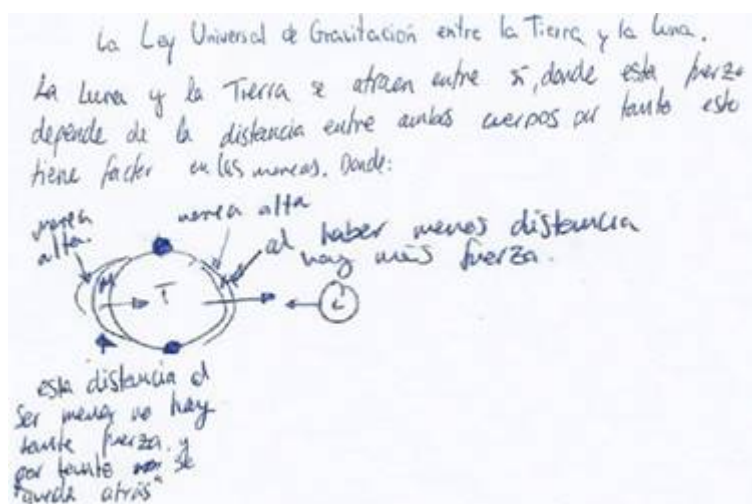 La Ley Universal de Gravitación entre la Tierra y la Luna.
La Luna y la Tierra se atraen entre sí, donde esta fuerza
depende de la distancia entre ambos cuerpos por tanto esto
tiene factor en las mareas. Donde:
marea alta.
marea alta
al haber menos distancia
hay más fuerza.
T
L
esta distancia al
ser menor no hay
tanta fuerza y
por tanto se
"queda atrás"